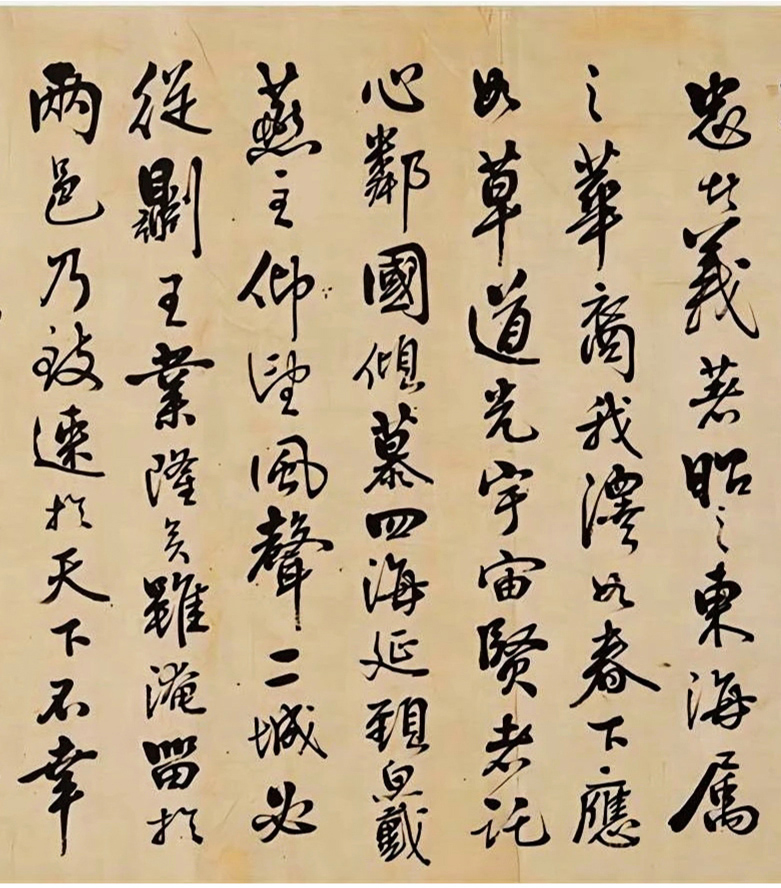 忠者義著昭之東海属
之華裔我澤如春下應
如草道光宇宙賢者託
心鄰國傾慕四海延頸思戴
燕主仰望風聲二城必
從則王業隆矣雖淹留於
兩邑乃致速於天下不幸